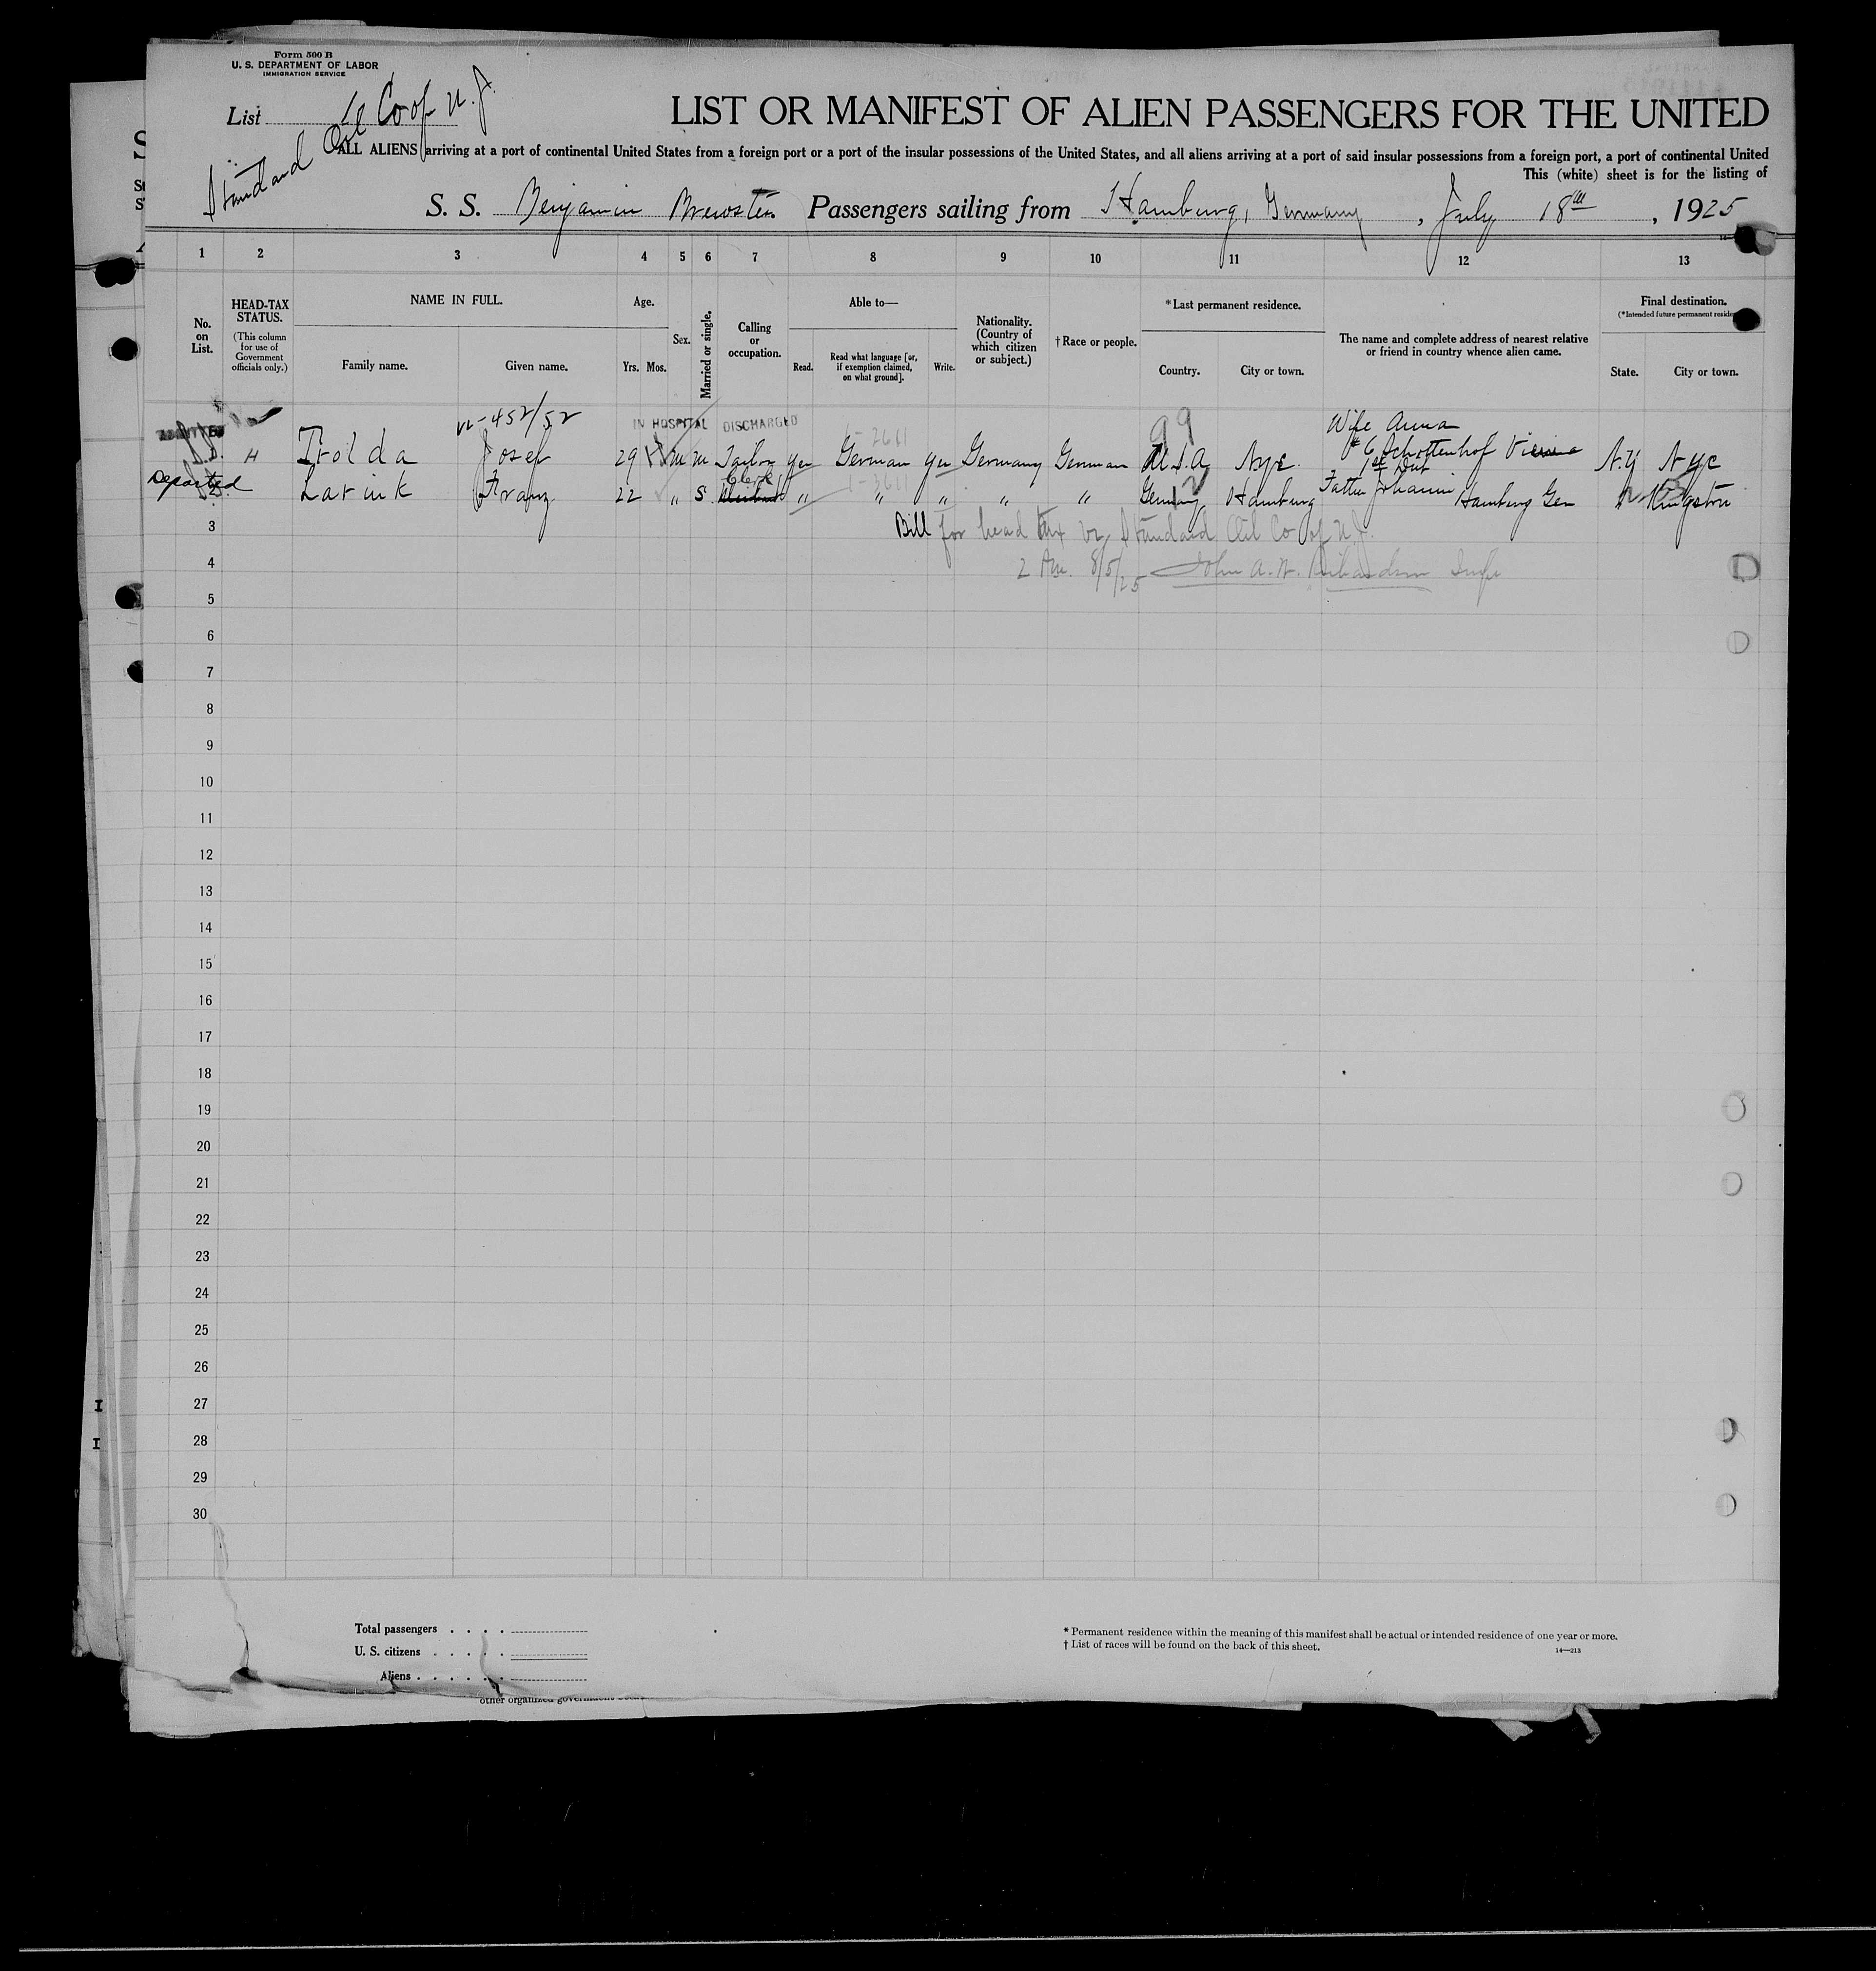 Form 500 B
U. S. DEPARTMENT OF LABOR
IMMIGRATION SERVICE
List
Standard Oil Co of N. J.
LIST OR MANIFEST OF ALIEN PASSENGERS FOR THE UNITED
ALL ALIENS arriving at a port of continental United States from a foreign port or a port of the insular possessions of the United States, and all aliens arriving at a port of said insular possessions from a foreign port, a port of continental United
This (white) sheet is for the listing of
S. S. Benjamin Brewster Passengers sailing from Hamburg, Germany, July 18th, 1925
1 2 3 4 5 6 7 8 9 10 11 12 13
No. on List.
HEAD-TAX STATUS.
(This column for use of Government officials only.)
NAME IN FULL.
Family name. Given name.
Age.
Yrs. Mos.
Sex.
Married or single.
Calling or occupation.
Able to—
Read. Read what language [or, if exemption claimed, on what ground]. Write.
Nationality. (Country of which citizen or subject.)
†Race or people.
*Last permanent residence.
Country. City or town.
The name and complete address of nearest relative or friend in country whence alien came.
Final destination.
(*Intended future permanent
State. City or town.
IN HOSPITAL DISCHARGED
99
Wife Anna
Josef 29 m m Tailor yes German yes Germany German U.S.A. Nyc. 6 Schottenhof N.Y Nyc
Clerk
Departed Franz 22 " S. " " " " " Germany Hamburg Father Johann Hamburg Ger Kingston
3 Bill for head tax Standard Oil Co of N.J.
4 8/5/25 John A. Richardson
5
6
7
8
9
10
11
12
13
14
15
16
17
18
19
20
21
22
23
24
25
26
27
28
29
30
Total passengers
U. S. citizens
Aliens
* Permanent residence within the meaning of this manifest shall be actual or intended residence of one year or more.
† List of races will be found on the back of this sheet.
14—213
other organized government